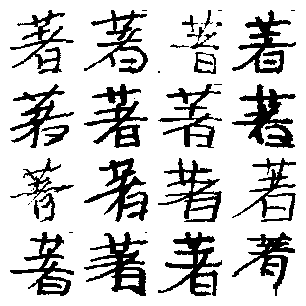 著著著著
著著著著
著著著著
著著著著